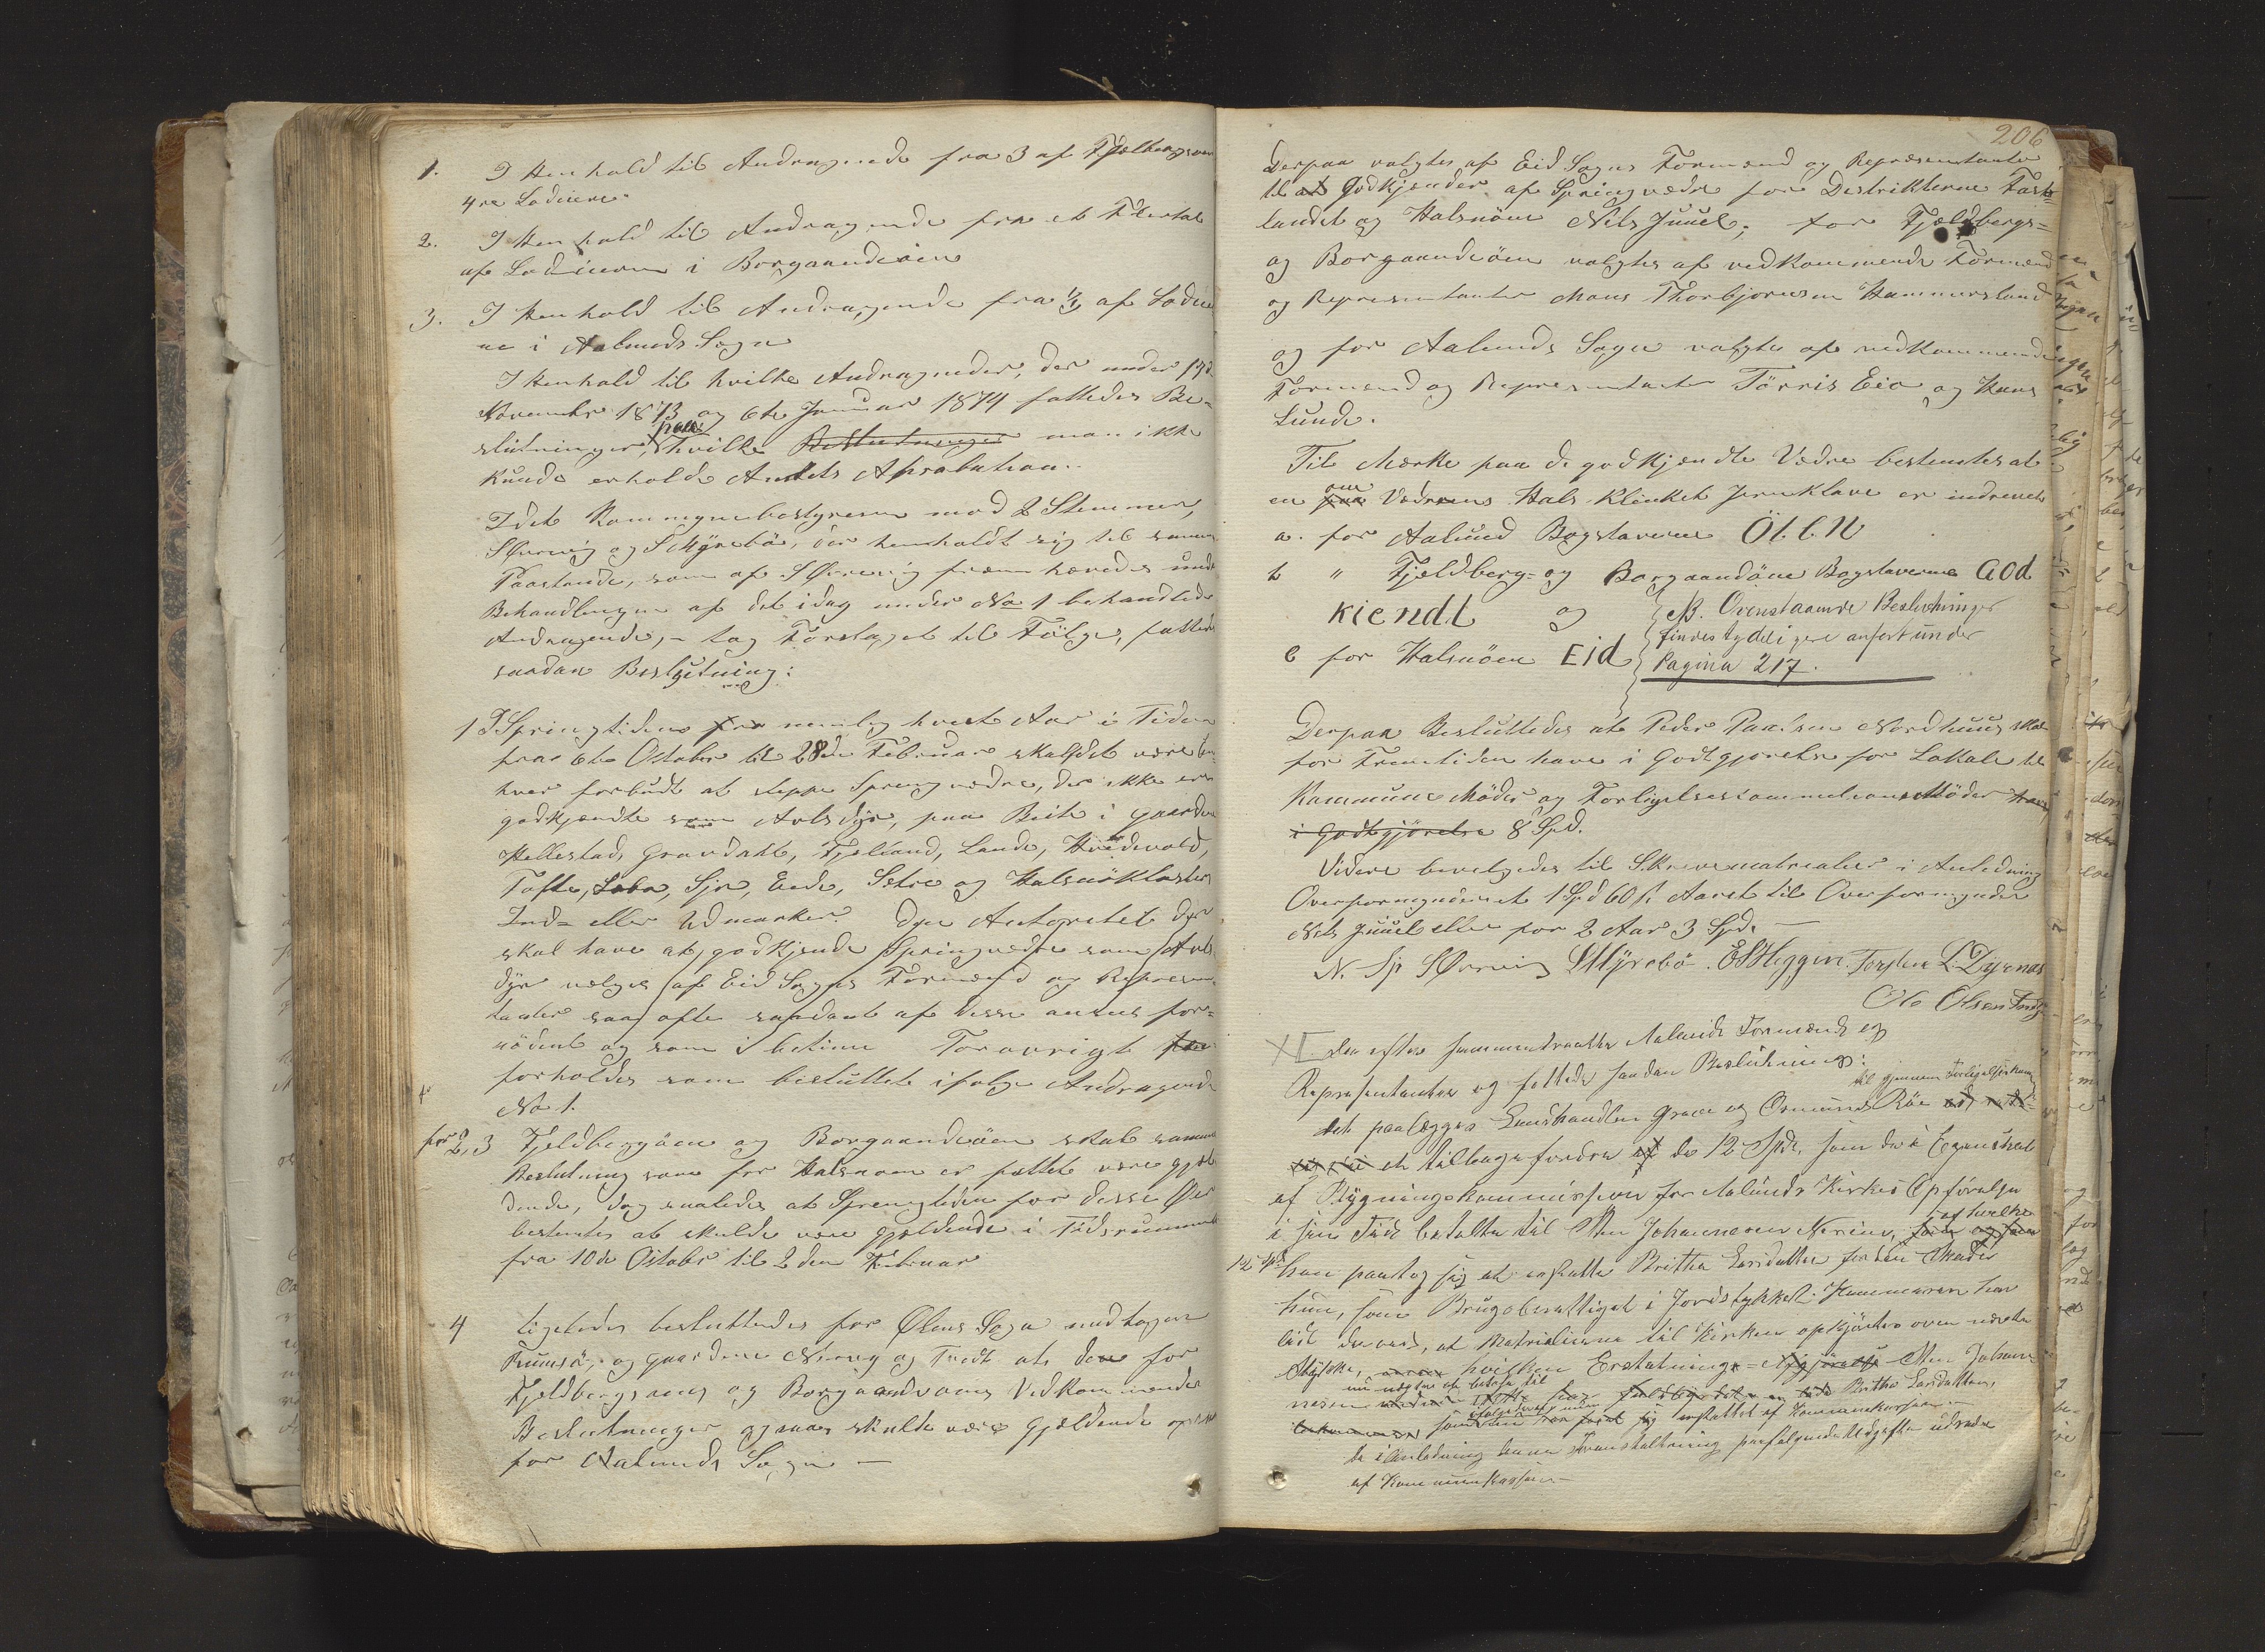 1. I Henhold til Andragende fra 3 af Fjælbergøens
4re Lodeiere.
2. I Henhold til Andragende fra et Flertal
af Lodeierne i Borgaandøien
3. I Henhold til Andragende fra af Lodeier
ne i Aalunds Sogn
I Henhold til hvilke Andragender, der under 19de
November 1873 og 6te Januar 1874 fattedes Be-
slutninger, paa hvilke Beslutninger man ikke
kunde erholde Amtets Aprobation.
Idet Kommunebestyrelsen mod 2 Stemmer,
SØrevig og S Myrebø, der henholdt sig til samme
Paastande, som af SØrevig fremhævedes under
Behandlingen af det idag under No 1 behandlede
Andragende, – tog Forslaget til Følge, fattedes
saadan Beslutning:
1 I Springtiden fra nemlig hvert Aar i Tiden
fra 6te Octobr til 28de Februar skal det være en-
hver forbudt at slippe Springvædre, der ikke ere
godkjendte som Avlsdyr, paa Beite i Gaarden
Hellestad, Gravdahl, Fjelland, Lande, Hvidevold,
Tofte, Sjo, Eide, Sætre og Halsnøkloster
Ind- eller Udmarker. Den Autoritet der
skal have at godkjende Springvædre som Avls
dyr vælges af Eid Sogns Formænd og Repræsen-
tanter saa ofte saadant af disse ansees for-
nödent og som i betimen Forøvrigt for
forholdes som besluttet ifølge Andragende
No 1.
for 2, 3 Fjeldbergøen og Borgaandøien skal samme
Beslutning som for Halsnøen er fattet være gjæl
dende, dog saaledes at Springtiden for disse Øer
bestemtes at skulde være gjældende i Tidsrummet
fra 10de Octobr til 2den Februar
4 Ligeledes besluttedes for Ølens Sogn undtagen
og Gaardene og Tvedt at den for
Fjeldbergøens og Borgaandøens Vedkommende
Beslutninger ogsaa skulde være gjældende
for Aalunds Sogn –
206
Derpaa valgtes af Eid Sogns Formænd og Repræsentanter
til at Godkjender af Springvædre for Distrikterne Fast-
landet og Halsnöen Nils Juuel; for Fjeldbergs-
og Borgaandöen valgtes af vedkommende Formænd
og Repræsentanter Mons Thorbjornsen Hammersland
og for Aalunds Sogn valgtes af vedkommende
Formænd og Repræsentanter Törris Eia og Hans
Lunde.
Til Mærke paa de godkjendte Vædre bestemtes at
en paa om Vædrens Hals Klinket Jernklave er indrevet
a. for Aalund Bogstaverne ÖLEN
b " Fjeldberg- og Borgaandöen Bogstaverne God
Kiendt og
c for Halsnöen Eid
NB. Ovenstaaende Beslutninger
findes tydeligere anført under
Pagina 217.
Derpaa Besluttedes at Peder Paulsen Nordhuus skal
for Fremtiden have i Godtgjørelse for Lokale til
Kommune Möder og Forligelseskommissions Möder have
i Godtgjörelse 8 Spd.
Videre bevilgedes til Skrivematrialier i Anledning
Overformynderiet 1 Spd 60 s. Aaret til Overformynder
Nils Juuel eller for 2 Aar 3 Spd. –
N. Sp SØrevig SMyrebö. E S Heggen. Torsten L. Dyrnæs
Ole Olsen
XI. Derefter sammentraadte Aalunds Formænd og
Repræsentanter og fattede saadan Beslutning:
til gjennem Forligelseskom
det paalægges Landhandler Grove og Ormund Röe
at tilbagefordre de 12 Spd. som de i Egenskab
af Bygningskommission for Aalunds Kirkes Opförelse
i sin Tid betalte til Sten Johannesen Nerim, af hvilke
12 Spd han paatog sig at erstatte Britha Larsdatter for den Skade
hun, som Brugsberettiget i Jordstykket har
lidt derved, at Matrialierne til Kirken opkjörtes over nævnte
Stykke, hvilken Erstatning Sten Johan-
nesen nu nægter at betale til Britha Larsdatter,
som erstattet af Kommunekassen
de i Anledning denne Foranstaltning paafølgende Udgifter udredes
af Kommunekassen –